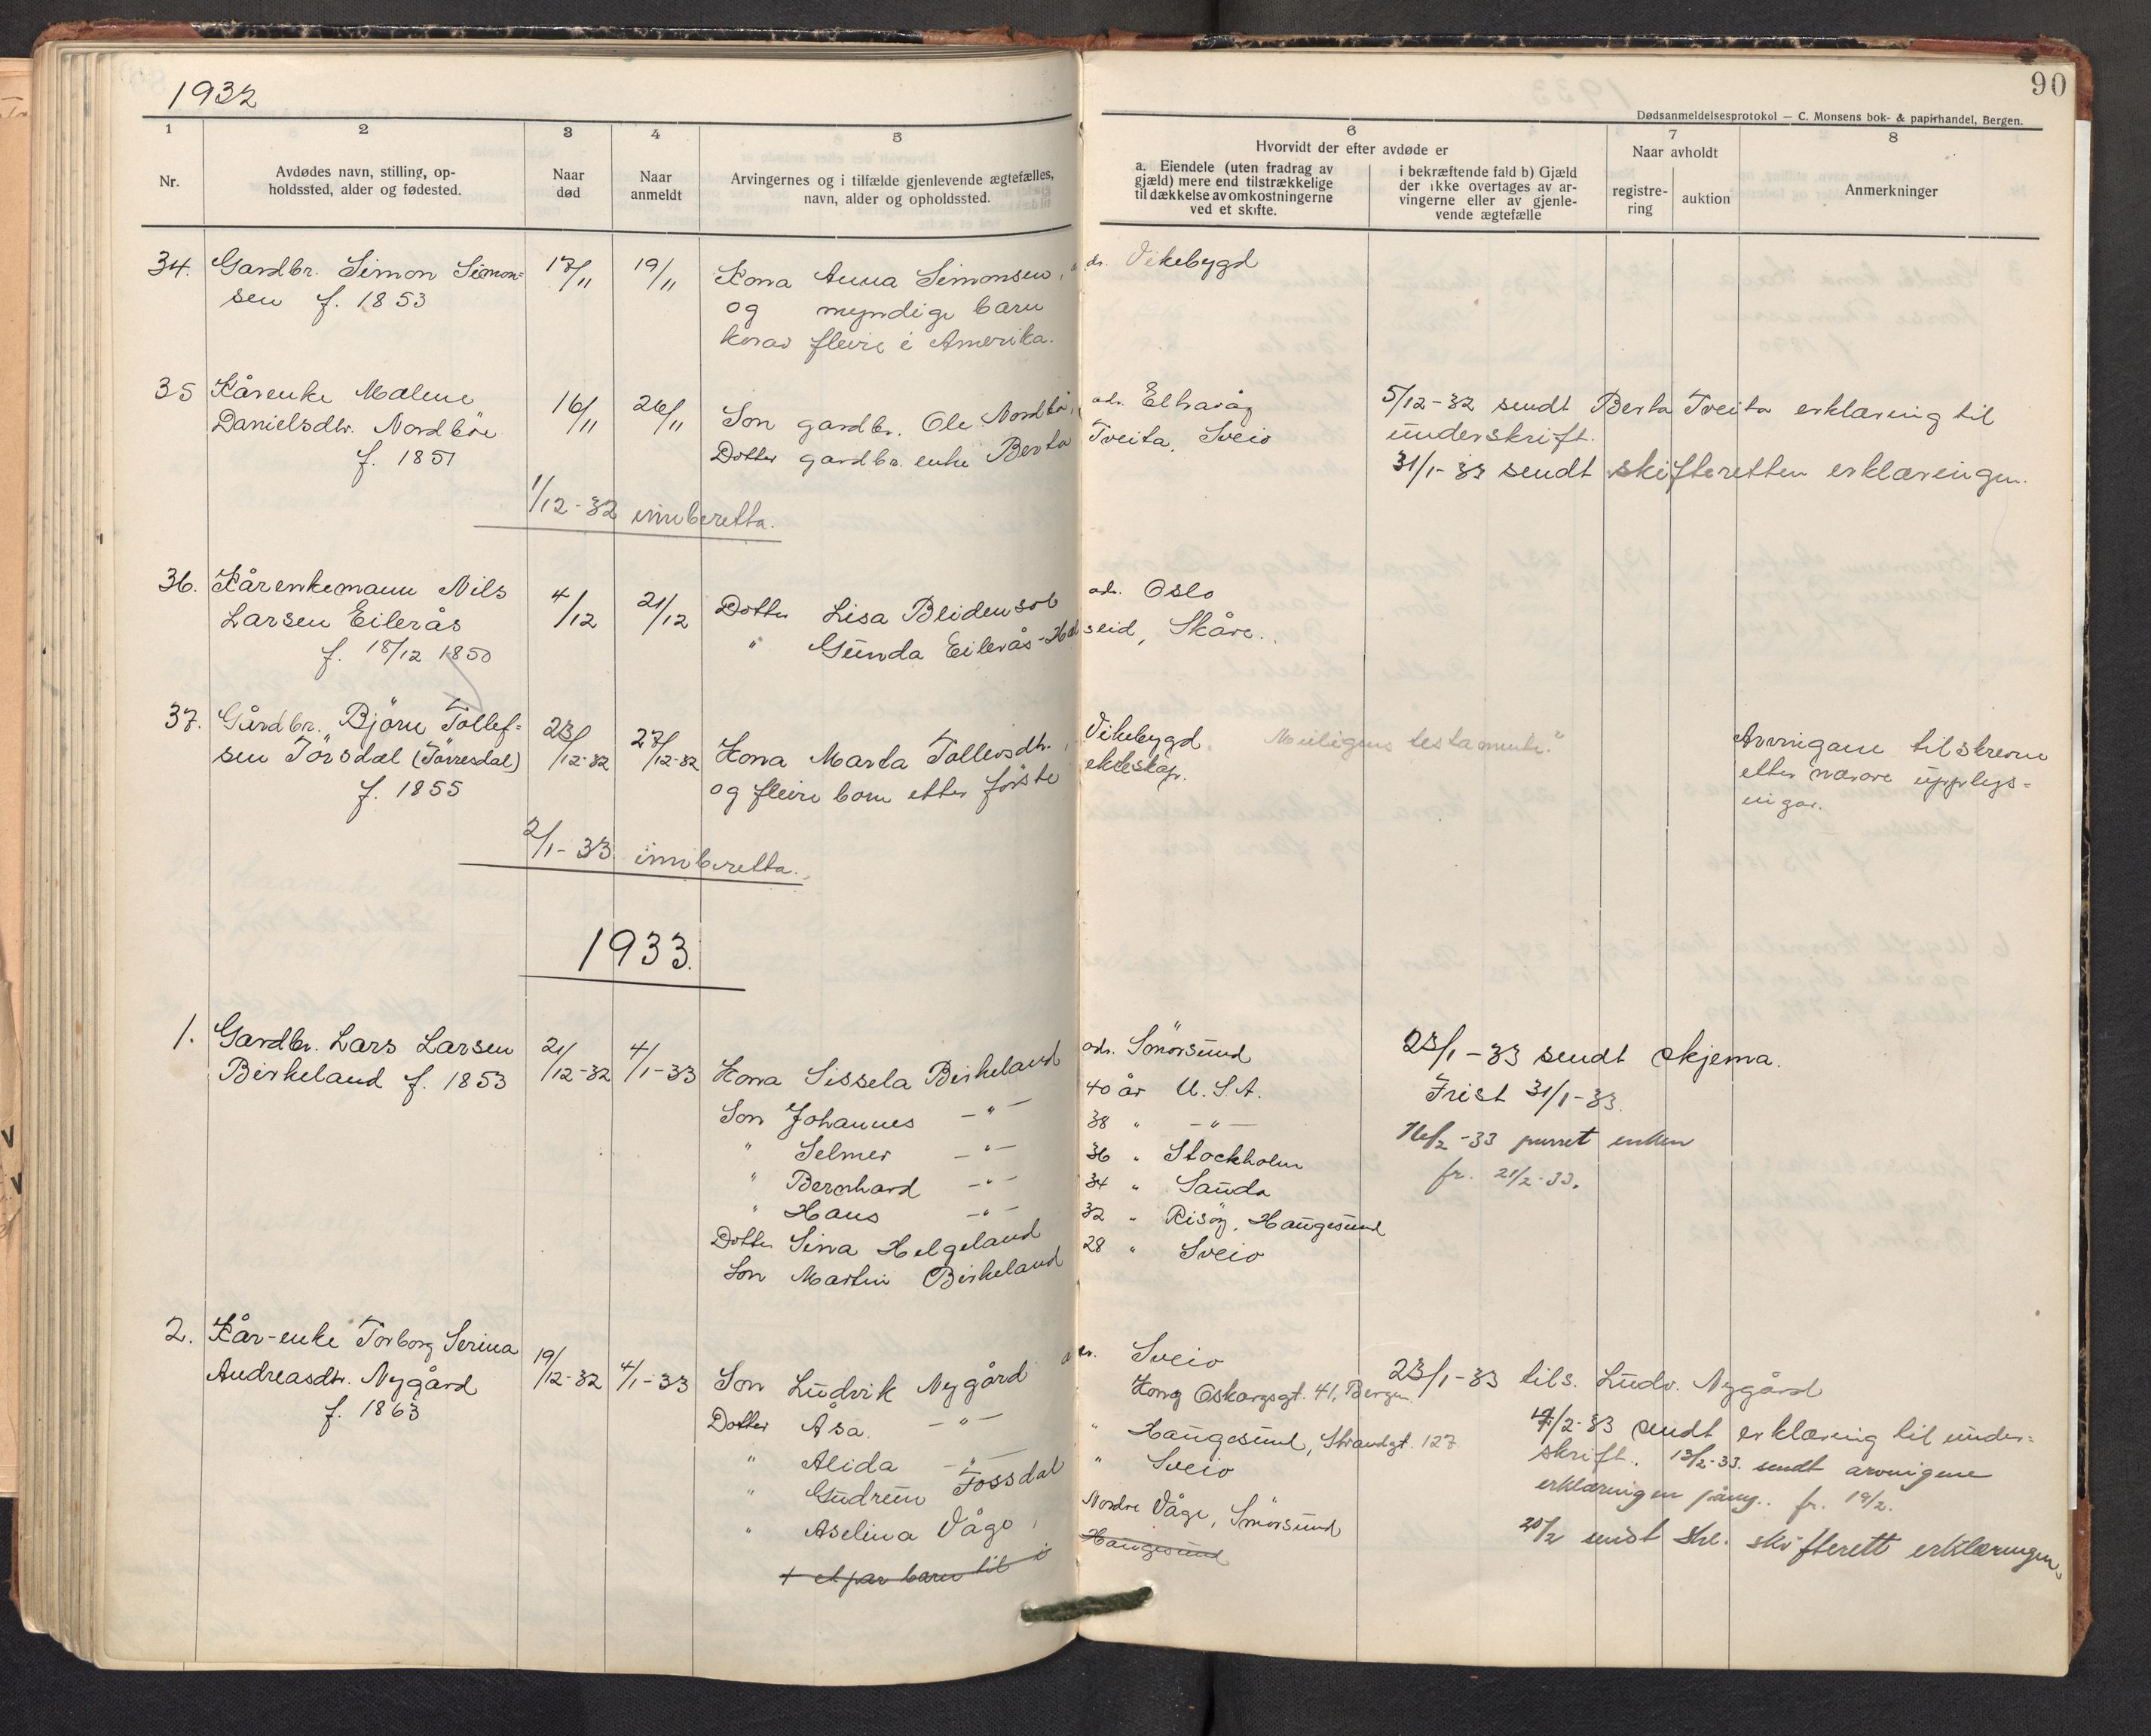 1932
90
Dødsanmeldelsesprotokol — C. Monsens bok- & papirhandel, Bergen.
1 2 3 4 5 6 7 8
Nr.
Avdødes navn, stilling, op-
holdssted, alder og fødested.
Naar
død
Naar
anmeldt
Arvingernes og i tilfælde gjenlevende ægtefælles,
navn, alder og opholdssted.
Hvorvidt der efter avdøde er
a. Eiendele (uten fradrag av
gjæld) mere end tilstrækkelige
til dækkelse av omkostningerne
ved et skifte.
i bekræftende fald b) Gjæld
der ikke overtages av ar-
vingerne eller av gjenle-
vende ægtefælle
Naar avholdt
registre-
ring
auktion
Anmerkninger
34. Gardbr. Simon Simon- 17/11 19/11 Kona Anna Simonsen, adr. Vikebygd
sen f. 1853 og myndige barn
korav fleire i Amerika.
35 Kårenke Malene 16/11 26/11 Son gardbr. Ole Nordbö, adr. Eltravåg 5/12-32 sendt Berta Tveita erklæring til
Danielsdtr. Nordböe Dotter gardbr. enke Berta Tveita, Sveio underskrift.
f. 1851 31/1-33 sendt skifteretten erklæringen.
1/12-32 innberetta.
36. Kårenkemann Nils 4/12 21/12 Dotter Lisa Blidensol adr. Oslo
Larsen Eilerås " Gunda Eilerås-Hal seid, Skåre.
f. 18/12 1850
37. Gårdbr. Björn Tollef- 23/12-32 27/12-32 Kona Marta Tollevsdtr., Vikebygd. Muligens testamente." Arvingane tilskrevne
sen Törsdal (Törresdal) og fleire born etter förste ekteskap. etter nærare upplys-
f. 1855 ningar.
2/1-33 innberetta.
1933.
1. Gardbr. Lars Larsen 21/12-32 4/1-33 Kona Sissela Birkeland adr. Smörsund 23/1-33 sendt skjema.
Birkeland f. 1853 Son Johannes —"— 40 år U.S.A. Frist 31/1-33.
" Selmer —"— 38 " —"— 16/2-33 purret enken
" Bernhard —"— 36 " Stockholm fr. 21/2-33.
" Hans —"— 34 " Sauda
Dotter Sina Helgeland 32 " Risöy, Haugesund
Son Martin Birkeland 28 " Sveio
2. Kår-enke Torborg Serina 19/12-32 4/1-33 Son Ludvik Nygård adr. Sveio 23/1-33 tils. Ludv. Nygård
Andreasdtr. Nygård Dotter Åsa —"— Kong Oskarsgt. 41, Bergen. /2-33 sendt erklæring til under-
f. 1863 " Alida —"— " Haugesund, Strandgt. 127 skrift. 13/2-33 sendt arvingene
" Gudrun Fossdal " Sveio erklæringen påny.. fr. 19/2.
" Aselina Våge, Nordre Våge, Smörsund 20/2 sendt skifterett erklæringen.
+ et par barn til i Haugesund